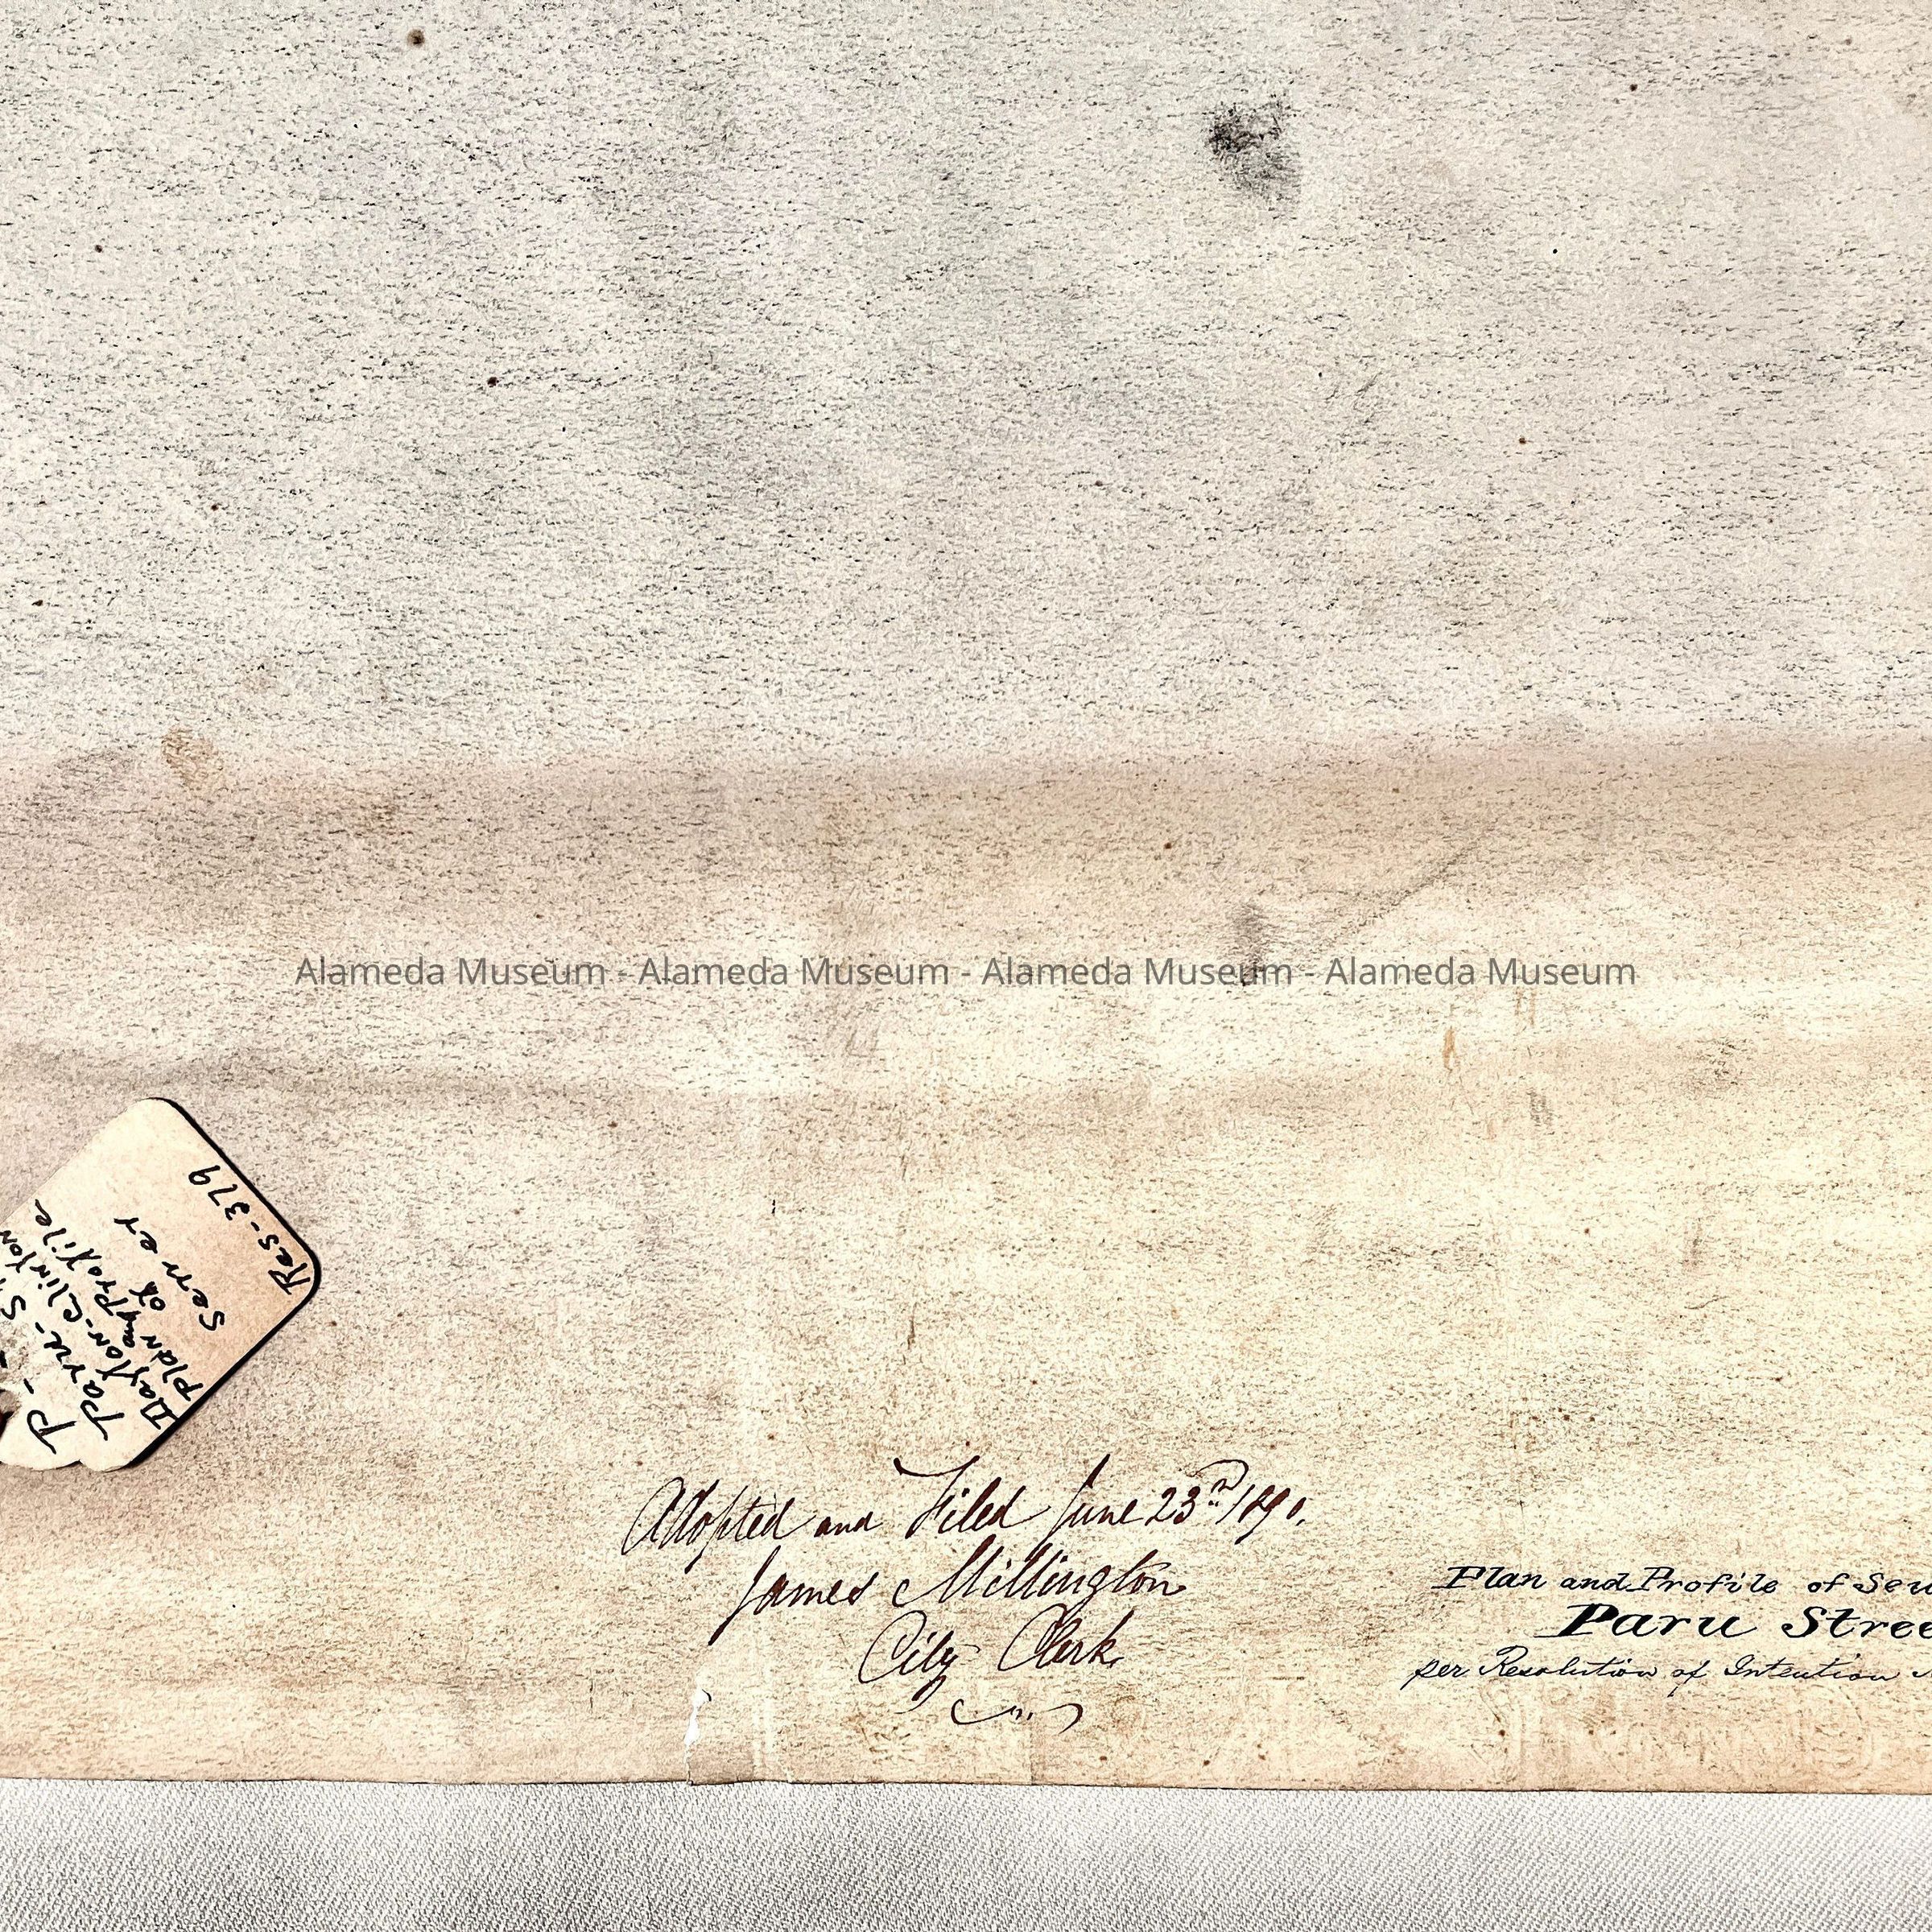 Alameda Museum - Alameda Museum - Alameda Museum - Alameda Museum
P-
Paru-S
Dayton-Clinton
Plan and Profile
of
Sewer
Res-379
Adopted and Filed June 23rd 1890.
James Millington
City Clerk
Plan and Profile of Sew
Paru Stree
per Resolution of Intention